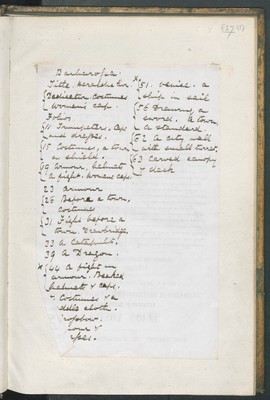 Barbarossa.
Title, heralds &c.
Dedication Costumes
Womens cap.
Folios
11 Trumpeters, Caps
and dresses.
15 Costume, a town
a shield.
19 Armour, helmets
a fight. Womens cap.
23 Armour
26 Before a town,
costume
31 Fight before a
town. Drawbridge,
33 A Catapult.
39 A Dragon.
x 44 A fight in
armour. Beaked
helmets & caps.
& Costumes & a
table cloth.
x 51. Venice. a
ship in sail
56 Drawing a
sword. A town
a standard
62 A city wall
with small turret.
63 Carved canopy
& desk